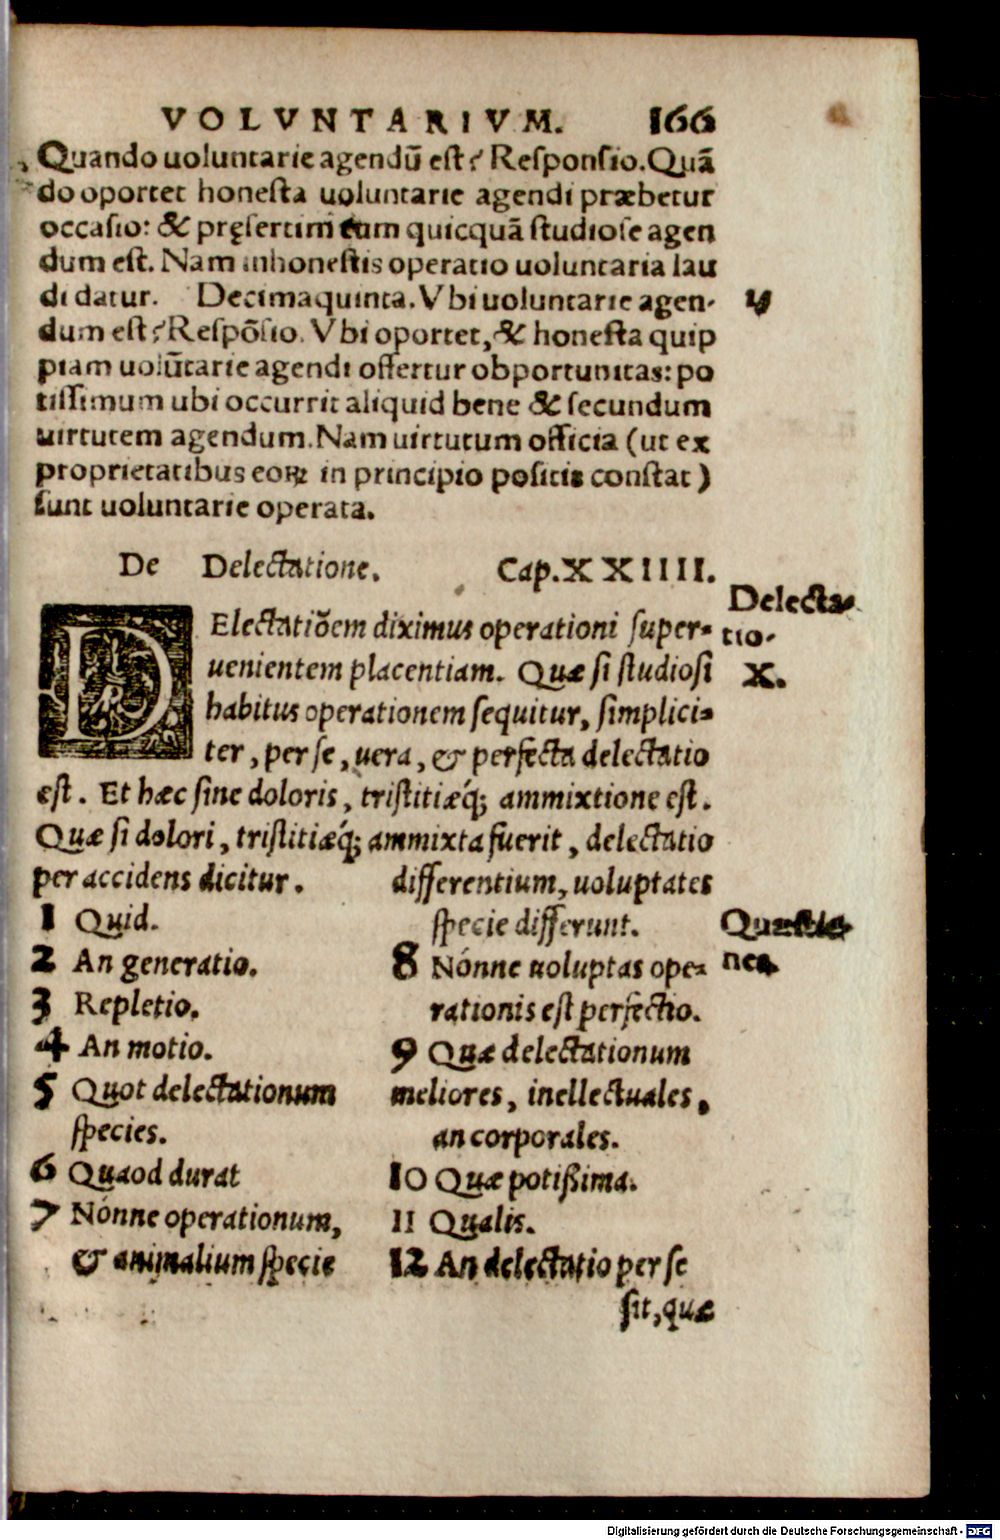 VOLVNTARIVM. 166
Quando uoluntarie agendũ est? Responsio. Quã
do oportet honesta uoluntarie agendi præbetur
occasio: & pręsertim cum quicquã studiose agen
dum est. Nam inhonestis operatio uoluntaria lau
di datur. Decimaquinta. Vbi uoluntarie agen-
dum est? Respõsio. Vbi oportet, & honesta quip
piam uolũtarie agendi offertur obportunitas: po
tissimum ubi occurrit aliquid bene & secundum
uirtutem agendum. Nam uirtutum officia (ut ex
proprietatibus eoꝝ in principio positis constat)
sunt uoluntarie operata.
y
De Delectatione. Cap. XXIIII.
DElectatiõem diximus operationi super-
uenientem placentiam. Quæ si studiosi
habitus operationem sequitur, simplici-
ter, per se, uera, & perfecta delectatio
est. Et hæc sine doloris, tristitiæq́; ammixtione est.
Quæ si dolori, tristitiæq́; ammixta fuerit, delectatio
per accidens dicitur.
Delecta-
tio.
X.
1 Quid.
2 An generatio.
3 Repletio.
4 An motio.
5 Quot delectationum
species.
6 Quaod durat
7 Nónne operationum,
& animalium specie
differentium, uoluptates
specie differunt.
8 Nónne uoluptas ope-
rationis est perfectio.
9 Quæ delectationum
meliores, inellectuales,
an corporales.
10 Quæ potißima.
11 Qualis.
12 An delectatio per se
sit, quæ
Quæstio-
nes.
Digitalisierung gefördert durch die Deutsche Forschungsgemeinschaft - DFG